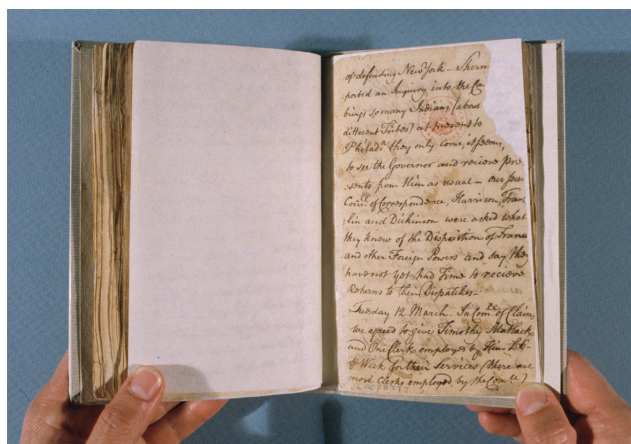 of defending New York — Sherm
ported an Inquiry into the Ca
brings so many Indians (about
different Tribes) at present to
Philadᵃ they only come, it seems,
to see the Governor and recieve pre
sents from Him as usual — our secr
Comᵉᵉ of Correspondence, Harrison, Fran
lin and Dickinson were asked what
they know of the Disposition of France
and other Foreign Powers and say they
have not yet had Time to recieve
Returns to their Dispatches —
Tuesday 12 March. In Comᵉᵉ of Claims
we agreed to give Timothy Matlack
and One Clerk employed by Him
Week for their Services (there are
most Clerks employed by the Comᵉᵉ)